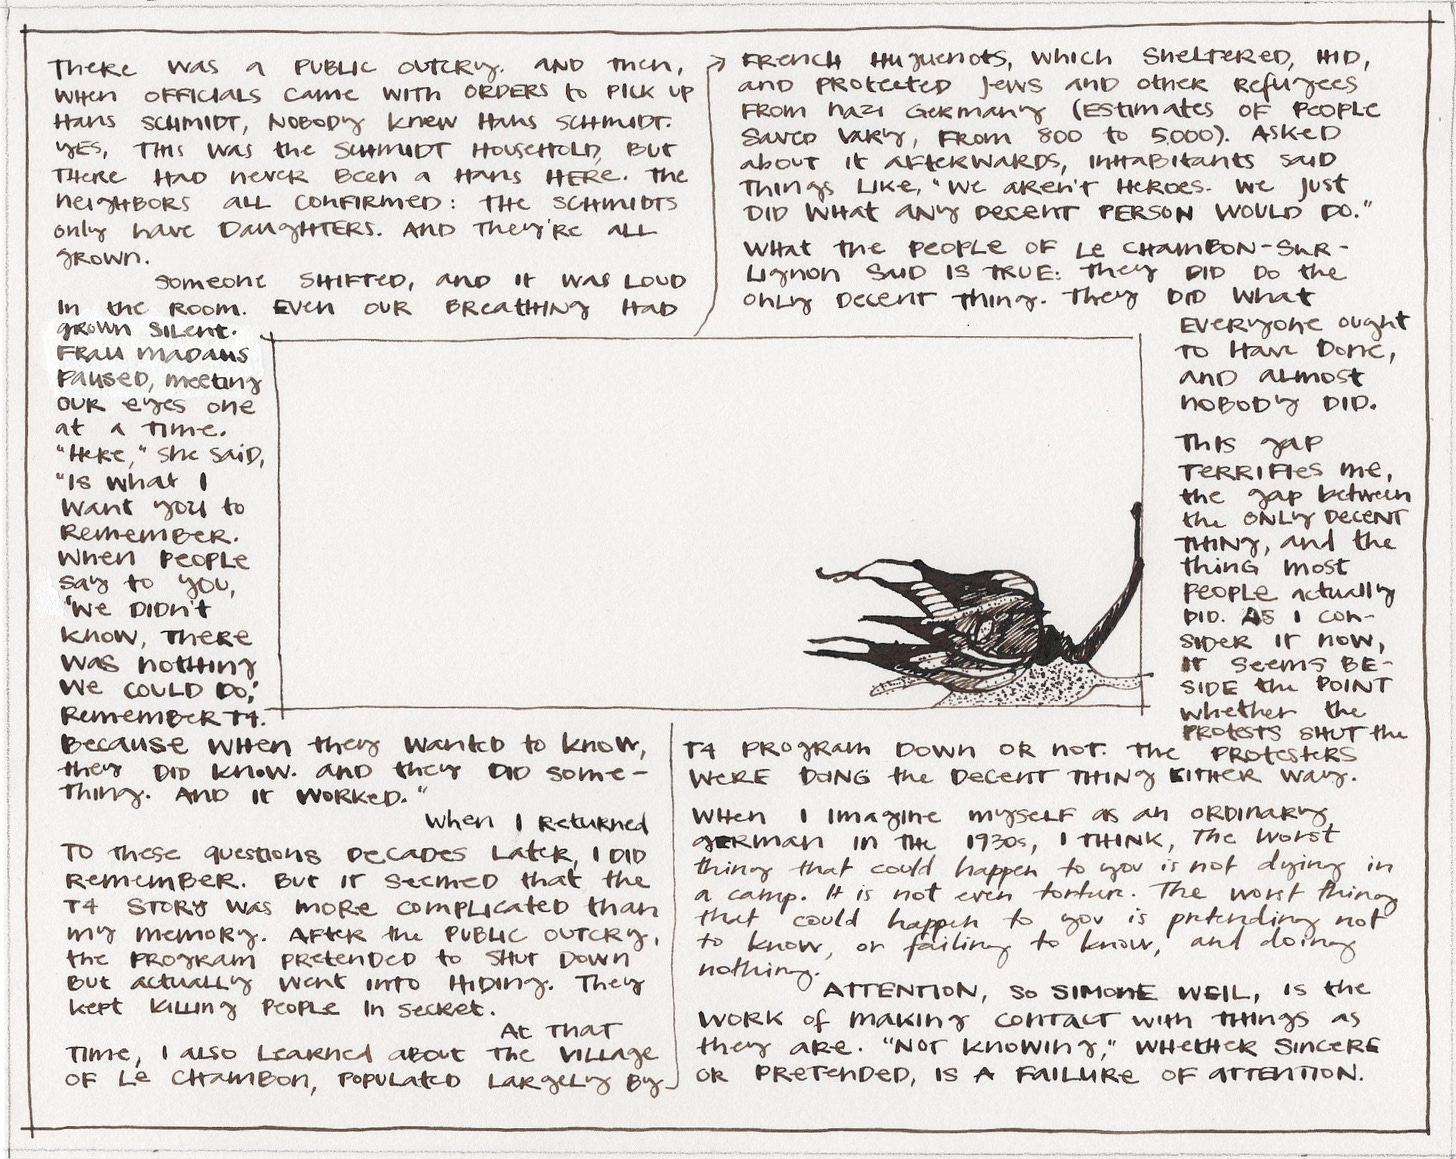 There was a public outcry. And then,
when officials came with orders to pick up
Hans Schmidt, nobody knew Hans Schmidt.
Yes, this was the Schmidt household, but
there had never been a Hans here. The
neighbors all confirmed: the Schmidts
only have daughters. And they're all
grown.
Someone shifted, and it was loud
in the room. Even our breathing had
grown silent.
Frau Madaus
paused, meeting
our eyes one
at a time.
"Here," she said,
"is what I
want you to
remember.
When people
say to you,
'We didn't
know, there
was nothing
we could do,'
remember T4.
Because when they wanted to know,
they did know. And they did some-
thing. And it worked."
When I returned
to these questions decades later, I did
remember. But it seemed that the
T4 story was more complicated than
my memory. After the public outcry,
the program pretended to shut down
but actually went into hiding. They
kept killing people in secret.
At that
time, I also learned about the village
of Le Chambon, populated largely by
French Huguenots, which sheltered, hid,
and protected Jews and other refugees
from Nazi Germany (estimates of people
saved vary, from 800 to 5,000). Asked
about it afterwards, inhabitants said
things like, "We aren't heroes. We just
did what any decent person would do."
What the people of Le Chambon-sur-
Lignon said is true: they did do the
only decent thing. They did what
everyone ought
to have done,
and almost
nobody did.
This gap
terrifies me,
the gap between
the only decent
thing, and the
thing most
people actually
did. As I con-
sider it now,
it seems be-
side the point
whether the
protests shut the
T4 program down or not. The protesters
were doing the decent thing either way.
When I imagine myself as an ordinary
German in the 1930s, I think, The worst
thing that could happen to you is not dying in
a camp. It is not even torture. The worst thing
that could happen to you is pretending not
to know, or failing to know, and doing
nothing.
Attention, so Simone Weil, is the
work of making contact with things as
they are. "Not knowing," whether sincere
or pretended, is a failure of attention.